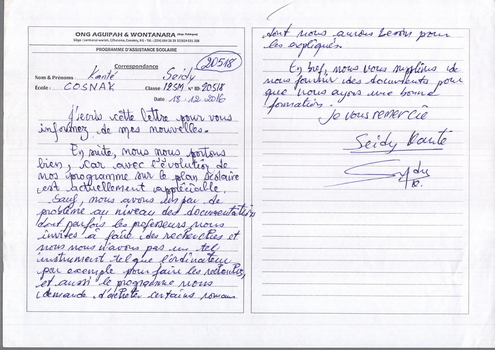 ONG AGUIPAH & WONTANARA
PROGRAMME D'ASSISTANCE SCOLAIRE
Correspondance
20518
Nom & Prénoms : Kanté Seidy
École : COSNAK Classe 12SM N° ID 20518
Date : 18.12.2016
J'écris cette lettre pour vous
informez de mes nouvelles.
En suite, nous nous portons
bien, car avec l'évolution de
nos programme sur le plan scolaire
est actuellement appréciable.
Sauf, nous avons un peu de
problème au niveau des documentations
dont parfois les professeurs nous
invites à faire des recherches et
nous nous n'avons pas un tel
instrument tel que l'ordinateur
par exemple pour faire les recherches,
et aussi le programme nous
demande d'acheté certains romans
dont nous aurons besoin pour
les expliqués.
En bref, nous vous supplions de
nous fournir des documents pour
que nous ayons une bonne
formation.
Je vous remercie
Seidy Kanté